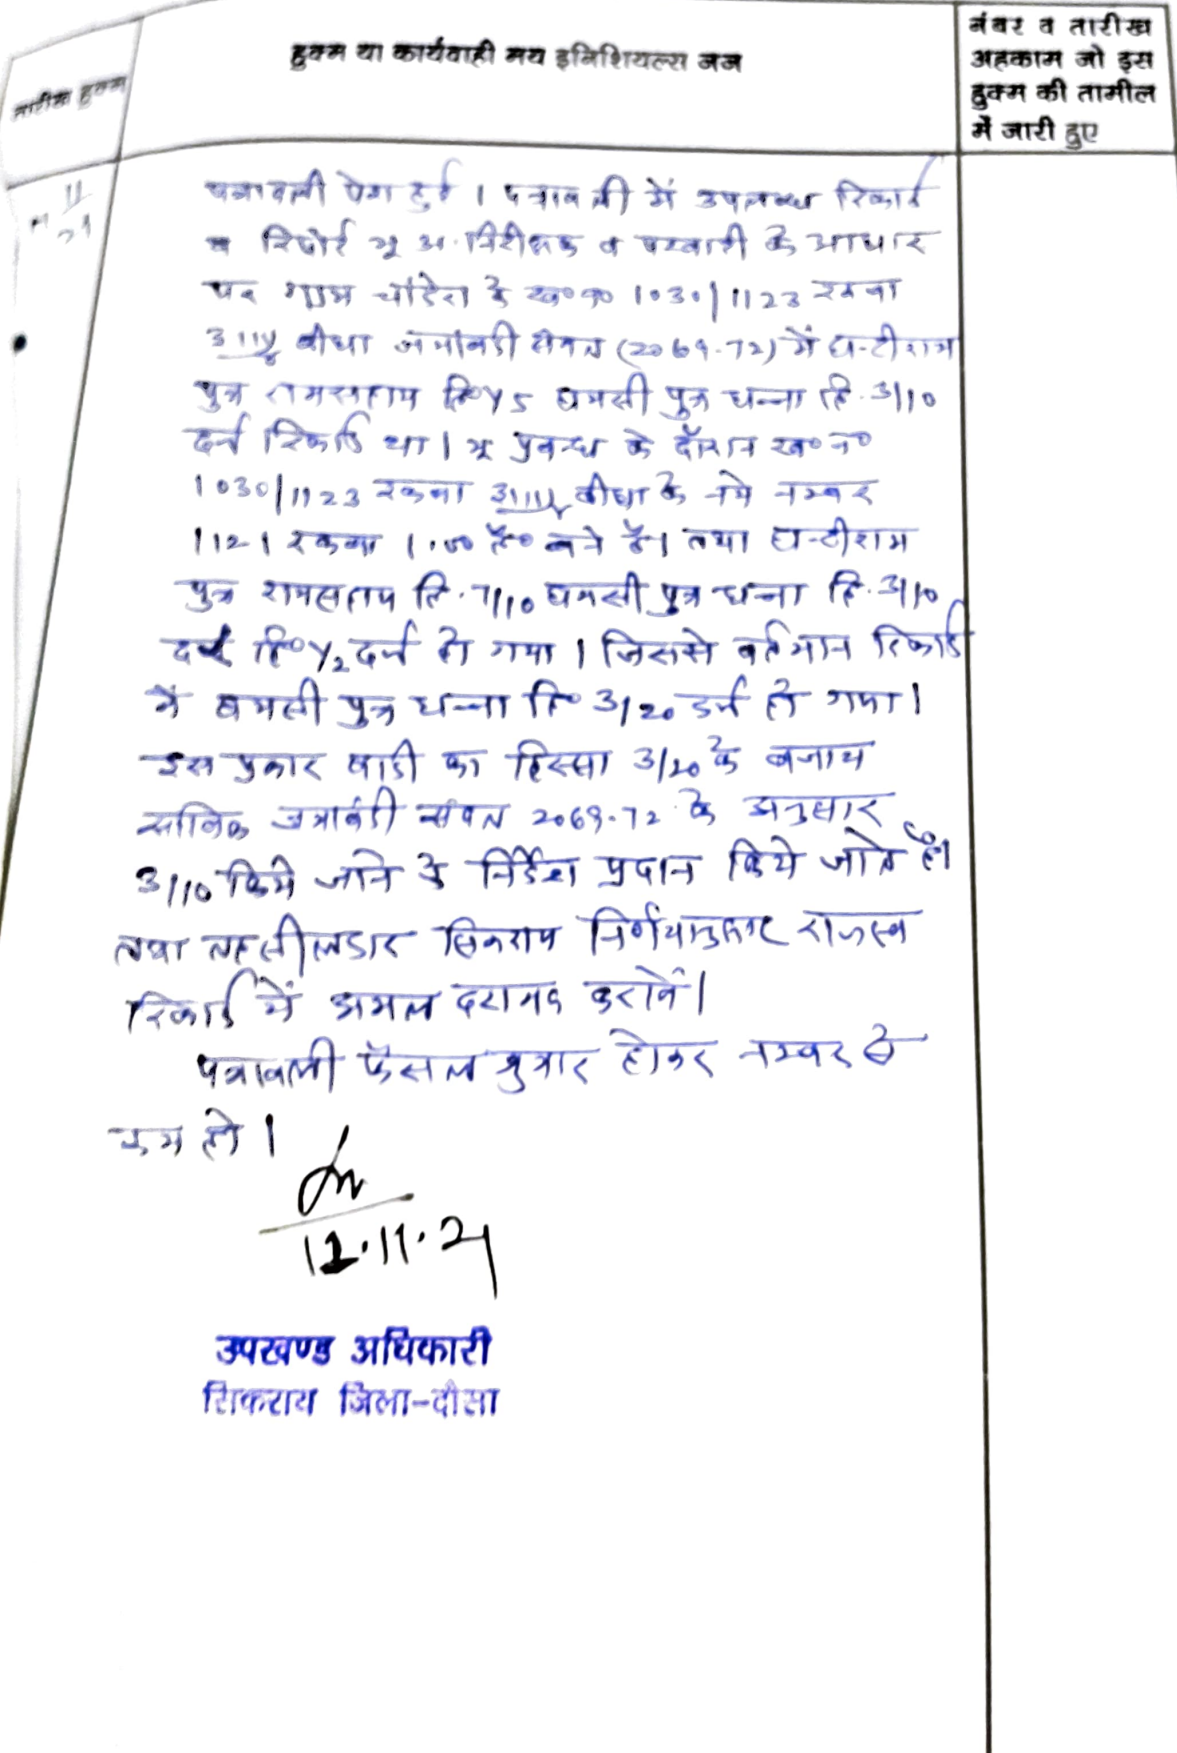 तारीख हुक्म
हुक्म या कार्यवाही मय इनिशियल्स जज
नंबर व तारीख
अहकाम जो इस
हुक्म की तामील
में जारी हुए
पत्रावली पेश हुई । पत्रावली में उपलब्ध रिकार्ड
व रिपोर्ट भू अ. निरीक्षक व पटवारी के आधार
पर ग्राम के ख०न० 1030/1123 रकबा
बीघा जमांबदी संवत (2069-72) में घन्टीराम
पुत्र रामसहाय घमसी पुत्र धन्ना हि. 3/10
दर्ज रिकार्ड था । भू प्रबन्ध के दौरान ख० न०
1030/1123 रकबा बीघा के नये नम्बर
1121 रकबा है० बने है। तथा घन्टीराम
पुत्र रामसहाय हि. 7/10 घमसी पुत्र धन्ना हि. 3/10
हि० 1/2 दर्ज हो गया । जिससे वर्तमान रिकार्ड
में घमसी पुत्र धन्ना हि० 3/20 दर्ज हो गया ।
इस प्रकार का हिस्सा 3/20 के बजाय
साबिक जमांबंदी संवत 2069-72 के अनुसार
3/10 किये जाने के निर्देश प्रदान किये जाते है।
तथा तहसीलदार सिकराय निर्णयानुसार राजस्व
रिकार्ड में अमल दरामद करावें ।
पत्रावली फैसल शुमार होकर नम्बर से
कम हो ।
12.11.21
उपखण्ड अधिकारी
सिकराय जिला-दौसा